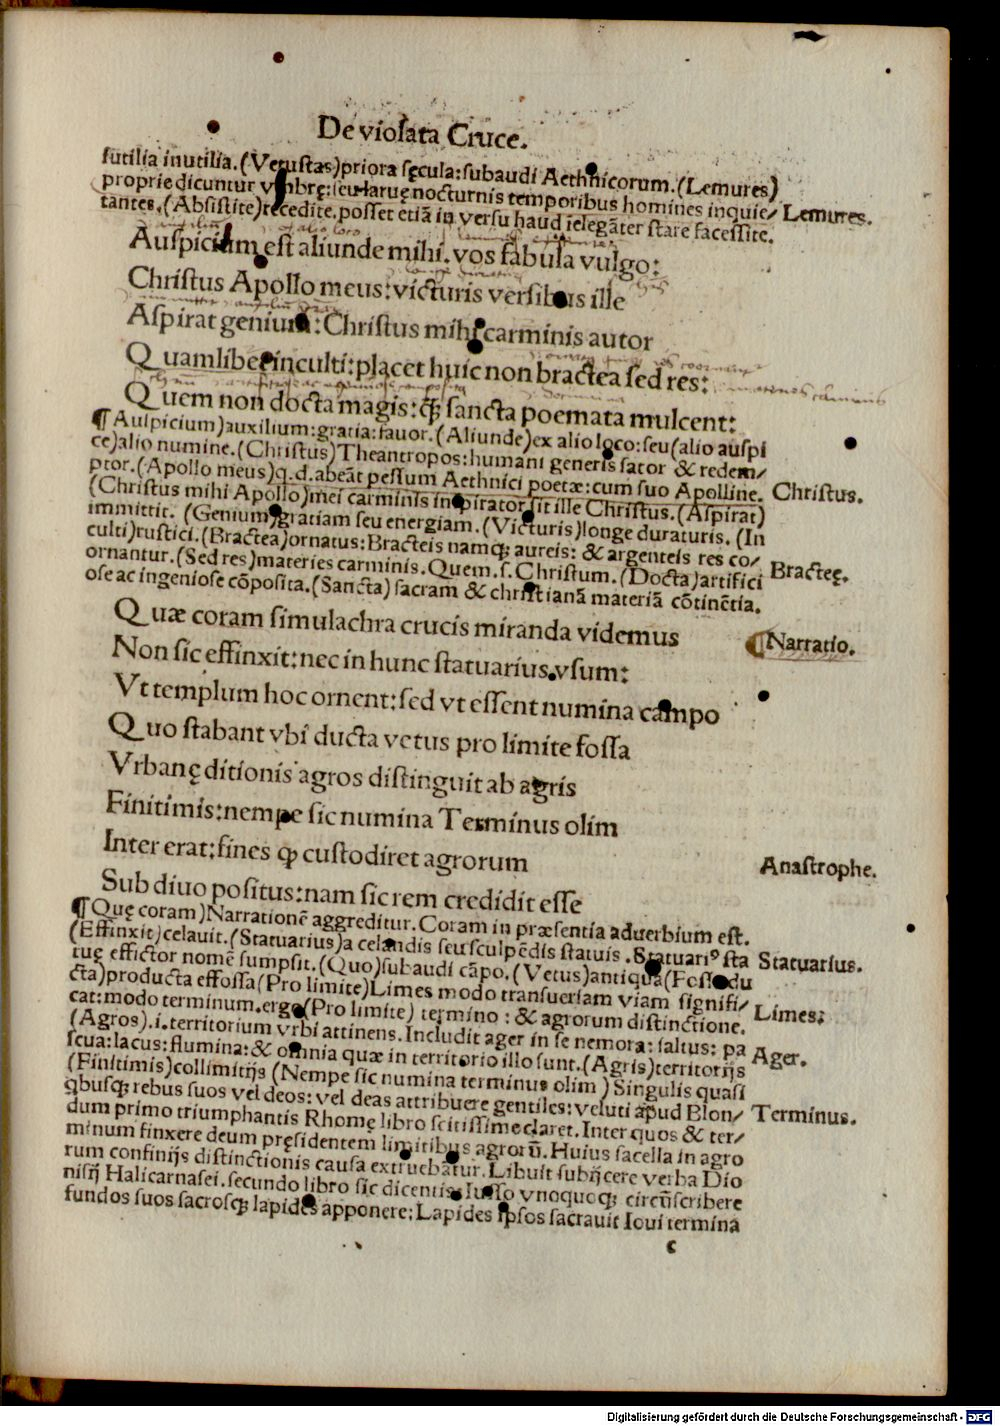 De violata Cruce.
futilia inutilia. (Vetustas) priora sęcula: subaudi Aethnicorum. (Lemures)
proprie dicuntur vmbrę: seu laruę nocturnis temporibus homines inquie/ Lemures.
tantes, (Absistite) recedite. posset etiã in versu haud ielegãter stare facessite.
Auspicium est aliunde mihi. vos fabula vulgo:
Christus Apollo meus: victuris versibus ille
Aspirat genium: Christus mihi carminis autor
Quamlibet inculti: placet huic non bractea sed res:
Quem non docta magis: ꝙ̃ sancta poemata mulcent:
¶ Auspicium) auxilium: gratia: fauor. (Aliunde) ex alio loco: seu (alio auspi
ce) alio numine. (Christus) Theantropos: humani generis sator & redem/
ptor. (Apollo meus) q. d. abeãt pessum Aethnici poetæ: cum suo Apolline. Christus.
(Christus mihi Apollo) mei carminis inspirator sit ille Christus. (Aspirat)
immittit. (Genium) gratiam seu energiam. (Victuris) longe duraturis. (In
culti) rustici. (Bractea) ornatus: Bracteis namqꝫ aureis: & argenteis res co/ Bracteę.
ornantur. (Sed res) materies carminis. Quem. s. Christum. (Docta) artifici
ose ac ingeniose cõposita. (Sancta) sacram & christianã materiã cõtinẽtia.
Quæ coram simulachra crucis miranda videmus ¶ Narratio.
Non sic effinxit: nec in hunc statuarius vsum:
Vt templum hoc ornent: sed vt essent numina campo
Quo stabant vbi ducta vetus pro limite fossa
Vrbanę ditionis agros distinguit ab agris
Finitimis: nempe sic numina Terminus olim
Inter erat: fines ꝙ custodiret agrorum Anastrophe.
Sub diuo positus: nam sic rem credidit esse
¶ Quę coram) Narrationẽ aggreditur. Coram in præsentia aduerbium est.
(Effinxit) celauit. (Statuarius) a celandis seu sculpẽdis statuis. Statuariꝰ sta Statuarius.
tuę effictor nomẽ sumpsit. (Quo) subaudi cãpo. (Vetus) antiqua (Fossa du
cta) producta effossa (Pro limite) Limes modo transuersam viam signifi/
cat: modo terminum. ergo (Pro limite) termino: & agrorum distinctione. Limes:
(Agros). i. territorium vrbi attinens. Includit ager in se nemora: saltus: pa
scua: lacus: flumina: & omnia quæ in territorio illo sunt. (Agris) territorijs Ager.
(Finitimis) collimitijs (Nempe sic numina terminus olim) Singulis quasi
qbusqꝫ rebus suos vel deos: vel deas attribuere gentiles: veluti apud Blon/ Terminus.
dum primo triumphantis Rhomę libro scitissime claret. Inter quos & ter/
minum finxere deum pręsidentem limitibus agrorũ. Huius sacella in agro
rum confinijs distinctionis causa extruebãtur. Libuit subijcere verba Dio
nisij Halicarnasei. secundo libro sic dicentis. Iusso vnoquoqꝫ circũscribere
fundos suos sacrosqꝫ lapides apponere: Lapides ipsos sacrauit Ioui termina
c
Digitalisierung gefördert durch die Deutsche Forschungsgemeinschaft - DFG